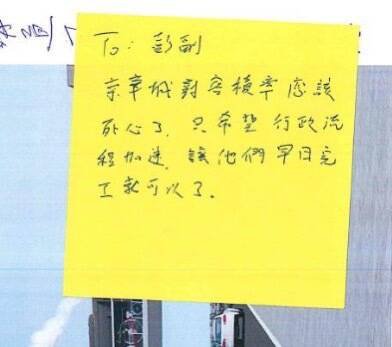 To: 彭副
京華城對容積率應該
死心了,只希望行政流
程加速,讓他們早日完
工就可以了.